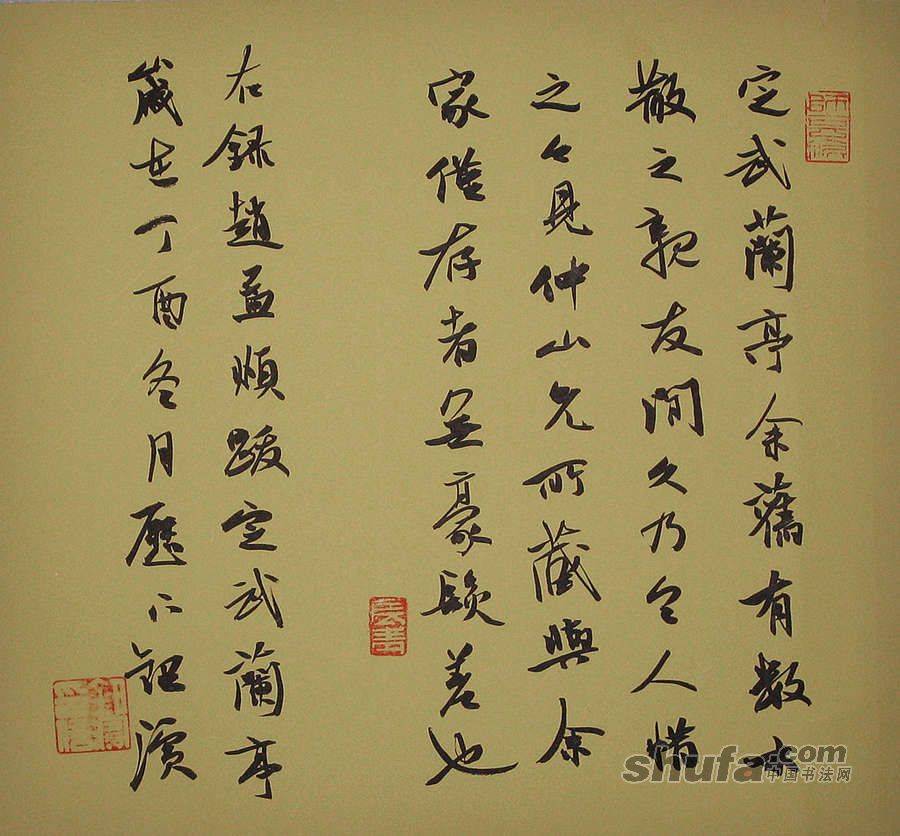 定武蘭亭余舊有數本
散之親友間久乃令人惜
之々見仲山兄所藏與余
家僅存者無豪髮差也
右錄趙孟頫跋定武蘭亭
歲在丁酉冬月歷下
shufa.com
中国书法网